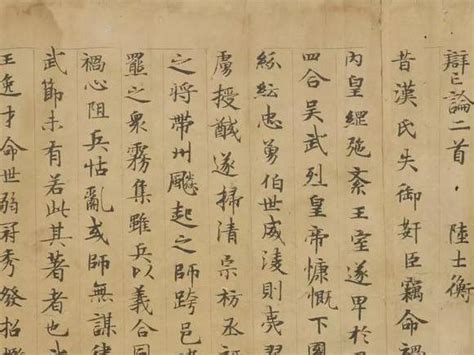 辯亡論二首 陸士衡
昔漢氏失御奸臣竊命
內皇綱弛紊王室遂卑於
四合吳武烈皇帝慷慨下國
紛紜忠勇伯世威淩則夷羿
虜授馘遂掃清宗祊丞
之將帶州飈起之師跨邑
羆之衆霧集雖兵以義合同
禍心阻兵怙亂或師無謀律
武節未有若此其著者也
王逸才命世弱冠秀發招